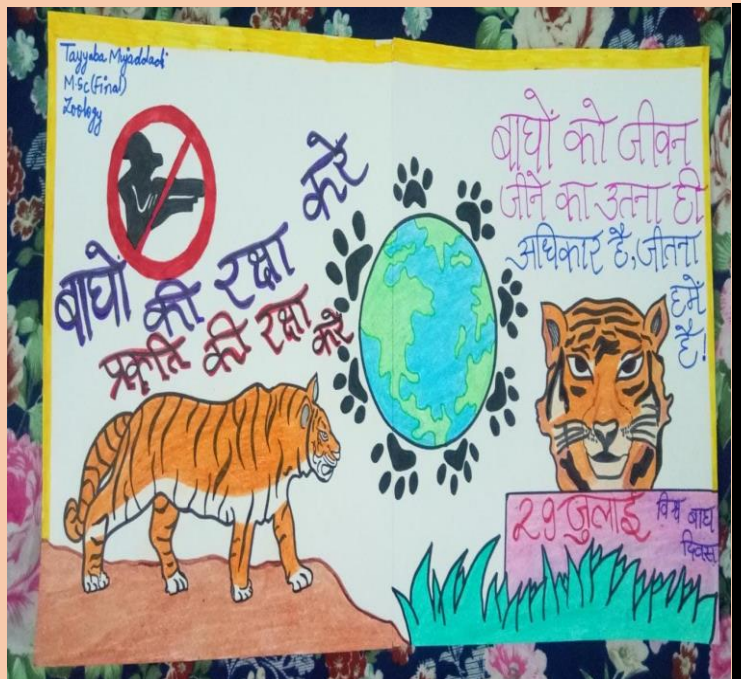 Tayyaba Mujaddadi
M.Sc(Final)
Zoology
बाघों की रक्षा करे
प्रकृति की रक्षा करे
बाघों को जीवन
जीने का उतना ही
अधिकार है, जीतना
हमें
है!
29 जुलाई
विश्व बाघ
दिवस